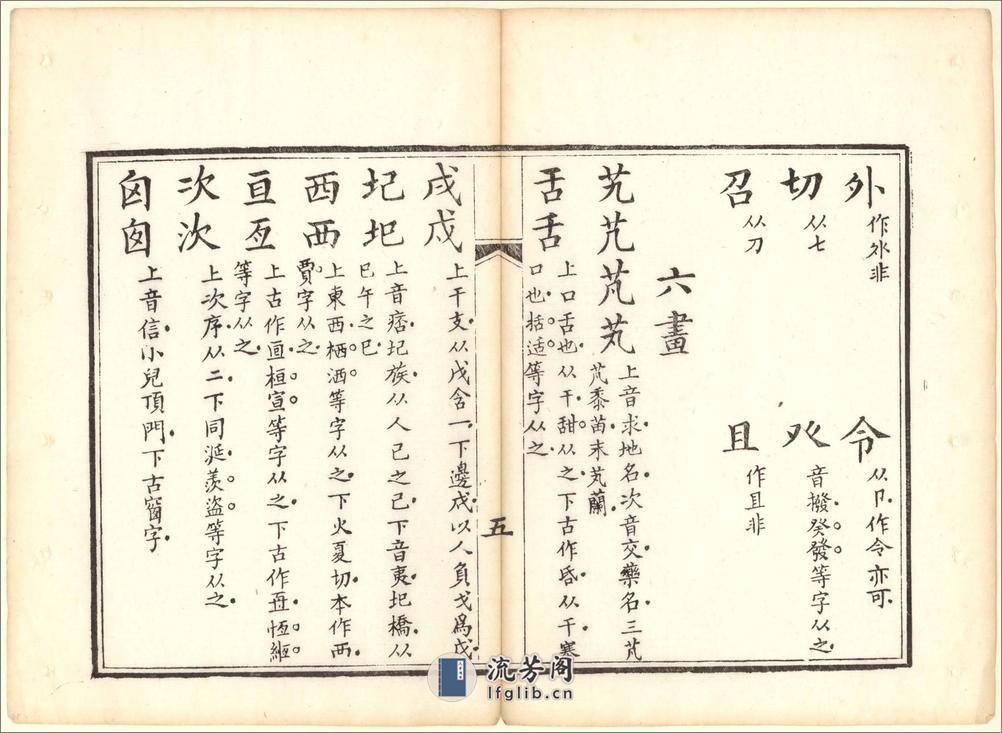 外 作外非 令 从卪作令亦可
切 从七 癶 音撥癸發等字从之
召 从刀 且 作且非
六畫
艽芃芤芄 上音求地名次音交藥名三芃
芃黍苗末芄蘭
舌舌 上口舌也从干甜从之下古作昏从千寒
口也括适等字从之
五
戌戍 上干支从戊含一下邊戍以人負戈爲戍
圮圯 上音痞圮族从人己之己下音夷圯橋从
巳午之巳
西襾 上東西栖洒等字从之下火夏切本作襾
賈字从之
亘亙 上古作亘桓宣等字从之下古作恆縆
等字从之
次㳄 上次序从二下同涎羨盜等字从之
囟囱 上音信小兒頂門下古窗字
流芳阁
lfglib.cn